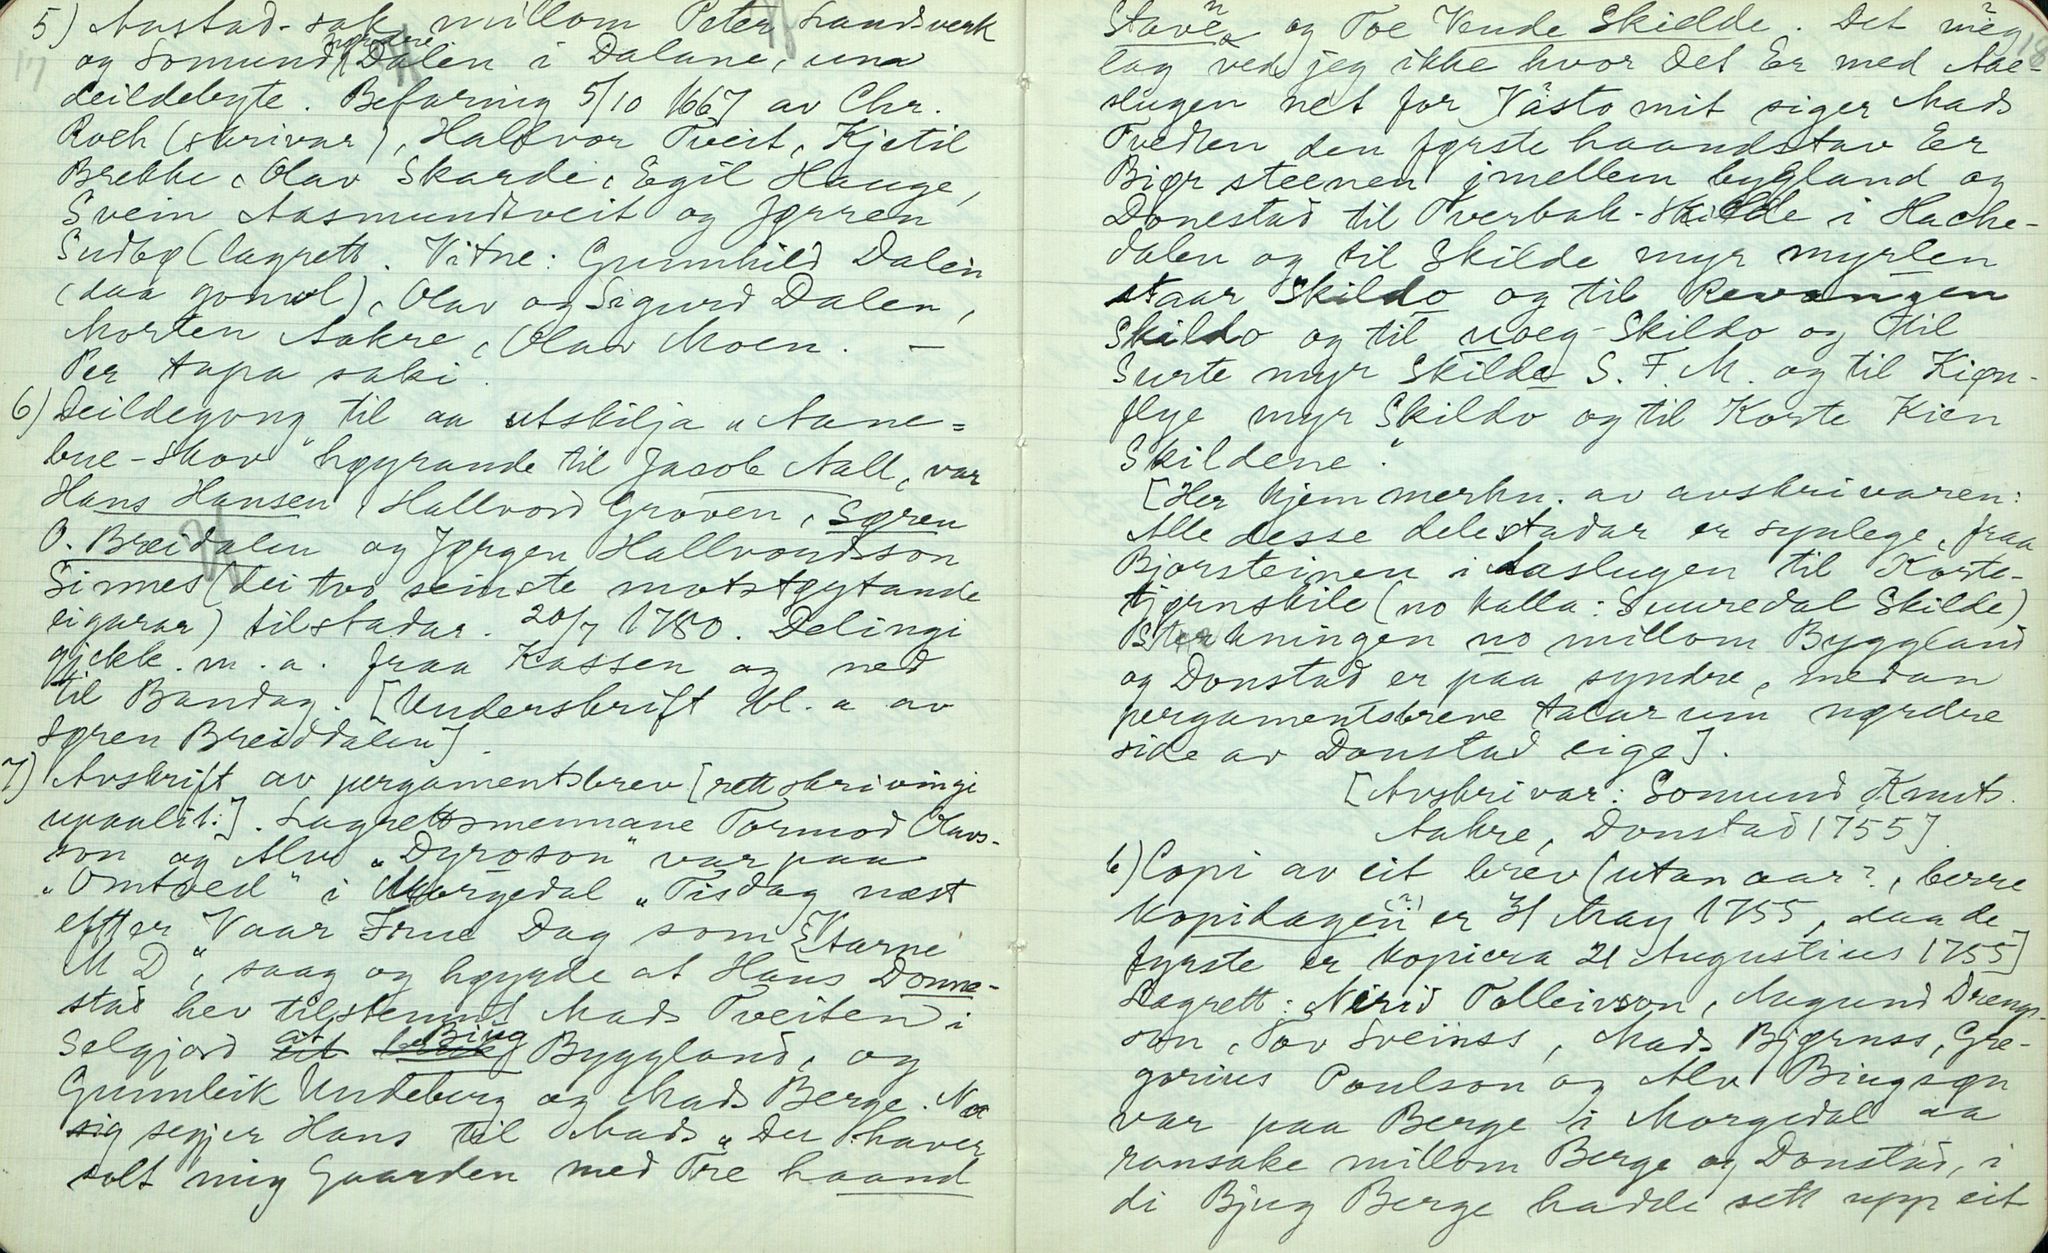 5) Aastad-sak millom Peter Landsverk
17
og Somund nordre Dalen i Dalane, um
deildebyte. Befaring 5/10 1667 av Chr.
Roch (skrivar), Hallvor Tveit, Kjetil
Brekke, Olav Skardi, Egil Hauge,
Svein Aasmundtveit og Jørren
Sudbø (lagrett. Vitne: Gunnhild Dalen
(daa gomol), Olav og Sigurd Dalen,
Morten Aakre, Olav Moen. –
Per tapa saki.
6) Deildegong til aa utskilja „Aane-
bue-skov" høyrande til Jacob Aall, var
Hans Hansen, Hallvord Groven, Søren
O. Breidalen og Jørgen Hallvordsson
Sinnes (dei tvo seinste motstøytande
eigarar) tilstadar. 20/7 1780. Delingi
gjekk m. a. fraa Kassen og ned
til Bandag. [Underskrift bl. a av
Søren Breiddalen].
7) Avskrift av pergamentsbrev [rettskrivingi
upaalit:]. Lagrettsmennane Tormod Olavs-
son og Alv „Dyroson" var paa
„Omtved" i Morgedal „Tisdag næst
efter Vaar Frue Dag som Ytarne
M D", saag og høyrde at Hans Donne-
stad hev tilstemnt Mads Tveiten i
Selgjord at Bjug Byggland, og
Gunnleik Undeberg og Mads Berge. No
sig segjer Hans til Mads „Du haver
solt mig Gaarden med Tre haand
Stave og Toe Vende Skielde. Det meg
18
lag ved jeg ikke hvor Det Er med Aae-
slugen net for Västo mit siger Mads
Tvedten den førstte haandstav Er
Biør steenen imellem bygland og
Donestad til Tverbak-Skilde i Hache-
dalen og til Skilde myr myrlen
staar Skildo og til Revangen
Skildo og til uveg-Skildo og til
Surte myr Skilde S. F. M. og til Kiøn-
flye myr Skildo og til Korte Kien
Skildene".
[Her kjem merkn. av avskrivaren:
Alle desse delestadar er synlege, fraa
Bjorsteinen i Aaslugen til Korte-
tjørnskile (no kalla: Suuredal Skilde)
Sterkningen no millom Byggland
og Donstad er paa syndre, medan
pergamentsbreve talar um nørdre
side av Donstad eige].
[Avskrivar: Somund Knuts.
Aakre, Donstad 1755]
6) Copi av eit brev (utan aar?, berre
Kopidagen (?) er 31 May 1755, daa de
fyrste er kopiera 21 Augustius 1755]
Lagrett: Nirid Tolleivson, Augund Drengs-
son, Tov Sveinss, Mads Bjørnss, Gre-
gorius Poulson og Alv Biugsøn
var paa Berge i Morgedal aa
ransake millom Berge og Donstad, i
di Bjug Berge hadde sett upp eit